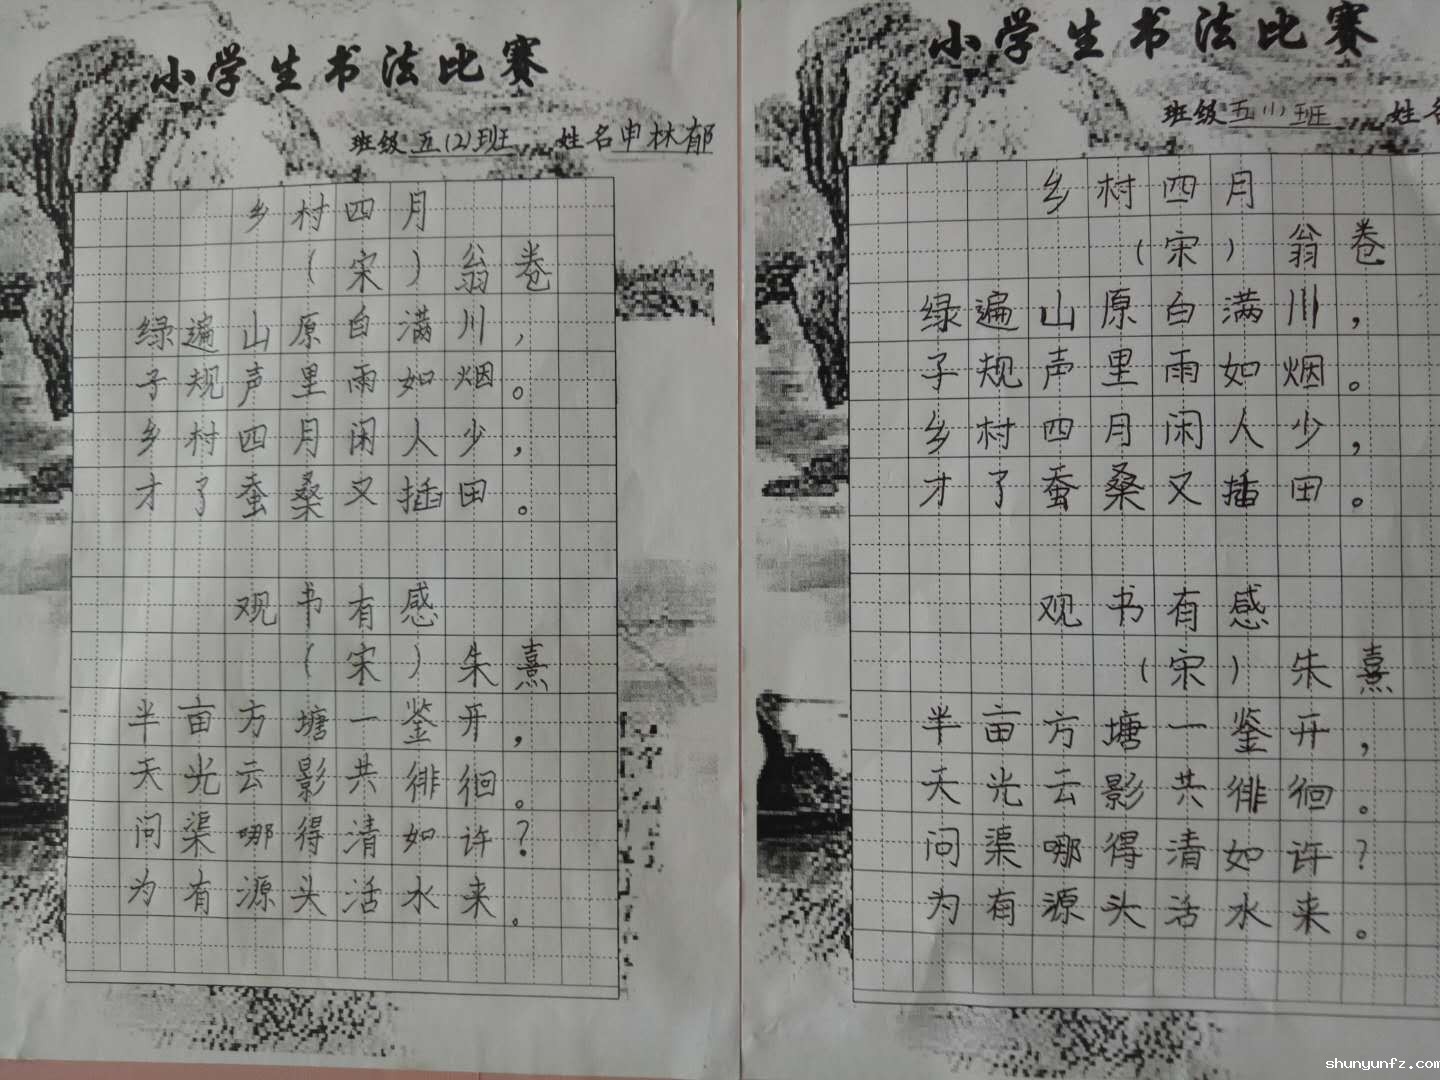 小学生书法比赛
班级五(2)班 姓名申林郁
乡村四月
(宋)翁卷
绿遍山原白满川，
子规声里雨如烟。
乡村四月闲人少，
才了蚕桑又插田。
观书有感
(宋)朱熹
半亩方塘一鉴开，
天光云影共徘徊。
问渠哪得清如许？
为有源头活水来。
小学生书法比赛
班级五(1)班 姓名
乡村四月
(宋)翁卷
绿遍山原白满川，
子规声里雨如烟。
乡村四月闲人少，
才了蚕桑又插田。
观书有感
(宋)朱熹
半亩方塘一鉴开，
天光云影共徘徊。
问渠哪得清如许？
为有源头活水来。
shunyunfz.com